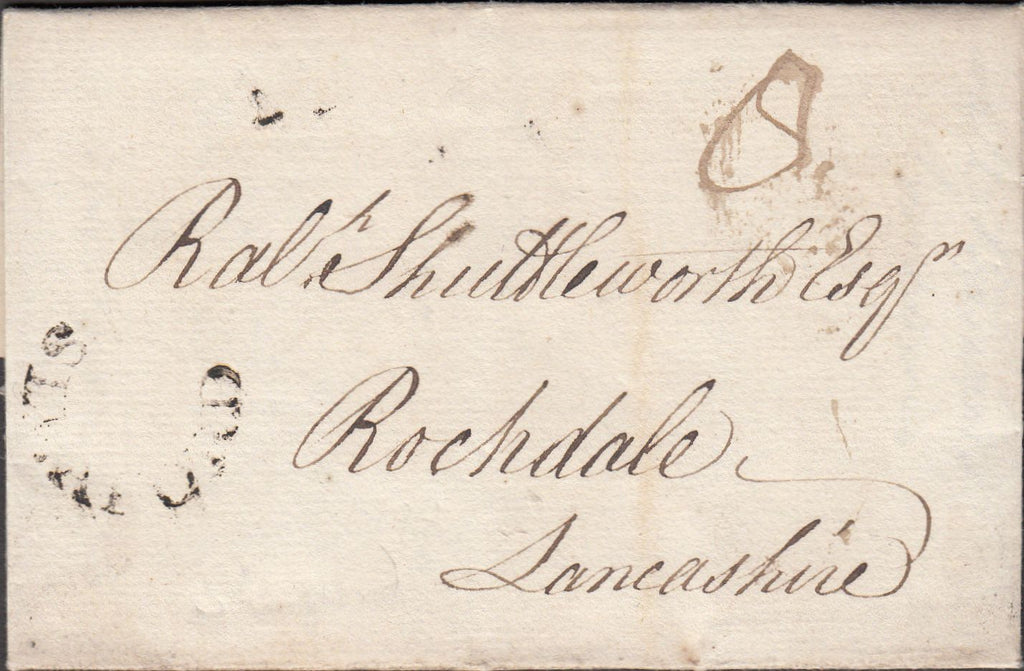 8
Ralh. Shuttleworth Esqr.
Rochdale
Lancashire